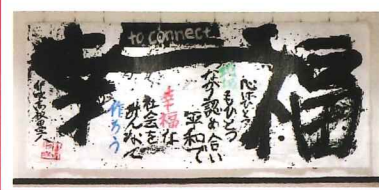 to connect
幸福
心はひとつ
もひとつ
認め合い
平和で
幸福な
社会を
みんなで
作ろう